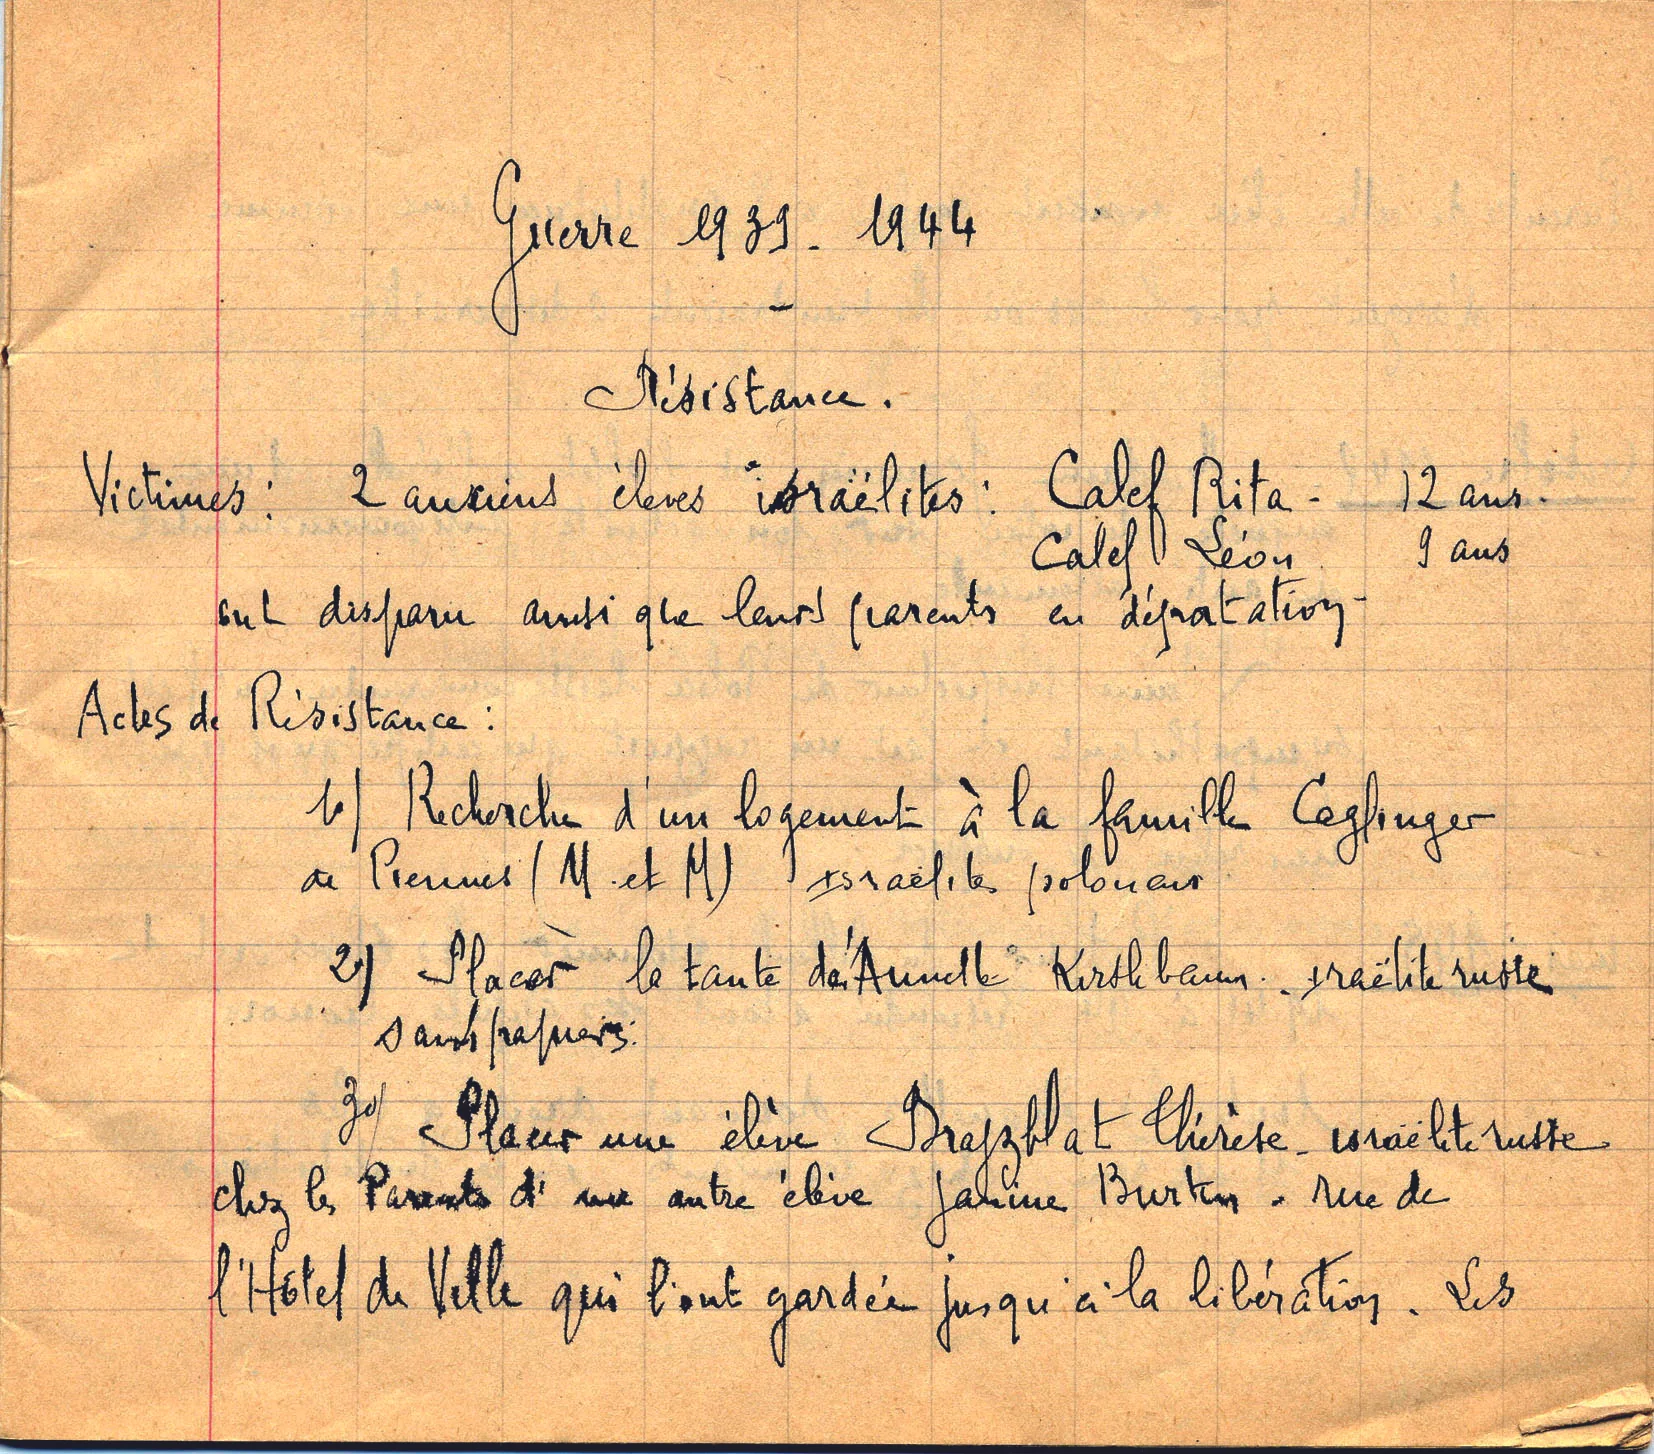 Guerre 1939 - 1944
-
Résistance.
Victimes : 2 anciens élèves israëlites : Calef Rita - 12 ans.
Calef Léon 9 ans
ont disparu ainsi que leurs parents en déportation -
Actes de Résistance :
1°) Recherche d'un logement à la famille
de Piennes (M. et M) israëlites polonais
2°) Placer la tante d'Annette Kirshbaum. israëlite russe
sans papiers.
3°) Placer une élève Brajzblat Thérèse - israëlite russe
chez les Parents d'une autre élève Janine Burtin. rue de
l'Hôtel de Ville qui l'ont gardée jusqu'à la libération. Les